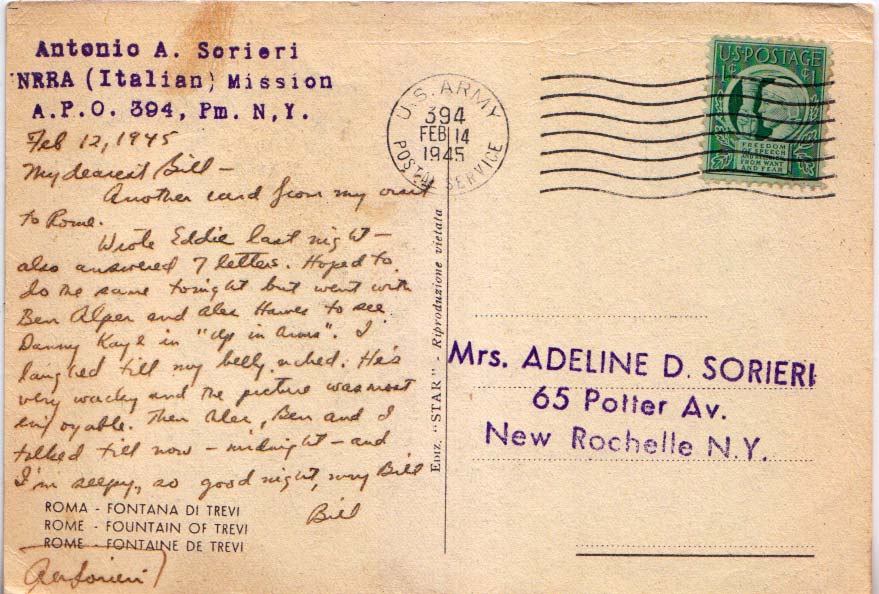 Antonio A. Sorieri
NRRA (Italian) Mission
A.P.O. 394, Pm. N.Y.
Feb 12, 1945
My dearest Bill —
Another card from my visit
to Rome.
Wrote Eddie last night —
also answered 7 letters. Hoped to
do the same tonight but went with
Ben Alper and Alex Hawes to see
Danny Kaye in "Up in Arms". I
laughed till my belly ached. He's
very wacky and the picture was most
enjoyable. Then Alex, Ben and I
talked till now — midnight — and
I'm sleepy, so good night, my Bill
Bill
ROMA - FONTANA DI TREVI
ROME - FOUNTAIN OF TREVI
ROME - FONTAINE DE TREVI
AASorieri
Ediz. "STAR" - Riproduzione vietata
U.S. ARMY
394
FEB 14
1945
POSTAL SERVICE
U·S·POSTAGE
1¢ ¢1
FREEDOM
OF SPEECH
AND RELIGION
FROM WANT
AND FEAR
Mrs. ADELINE D. SORIERI
65 Potter Av.
New Rochelle N.Y.